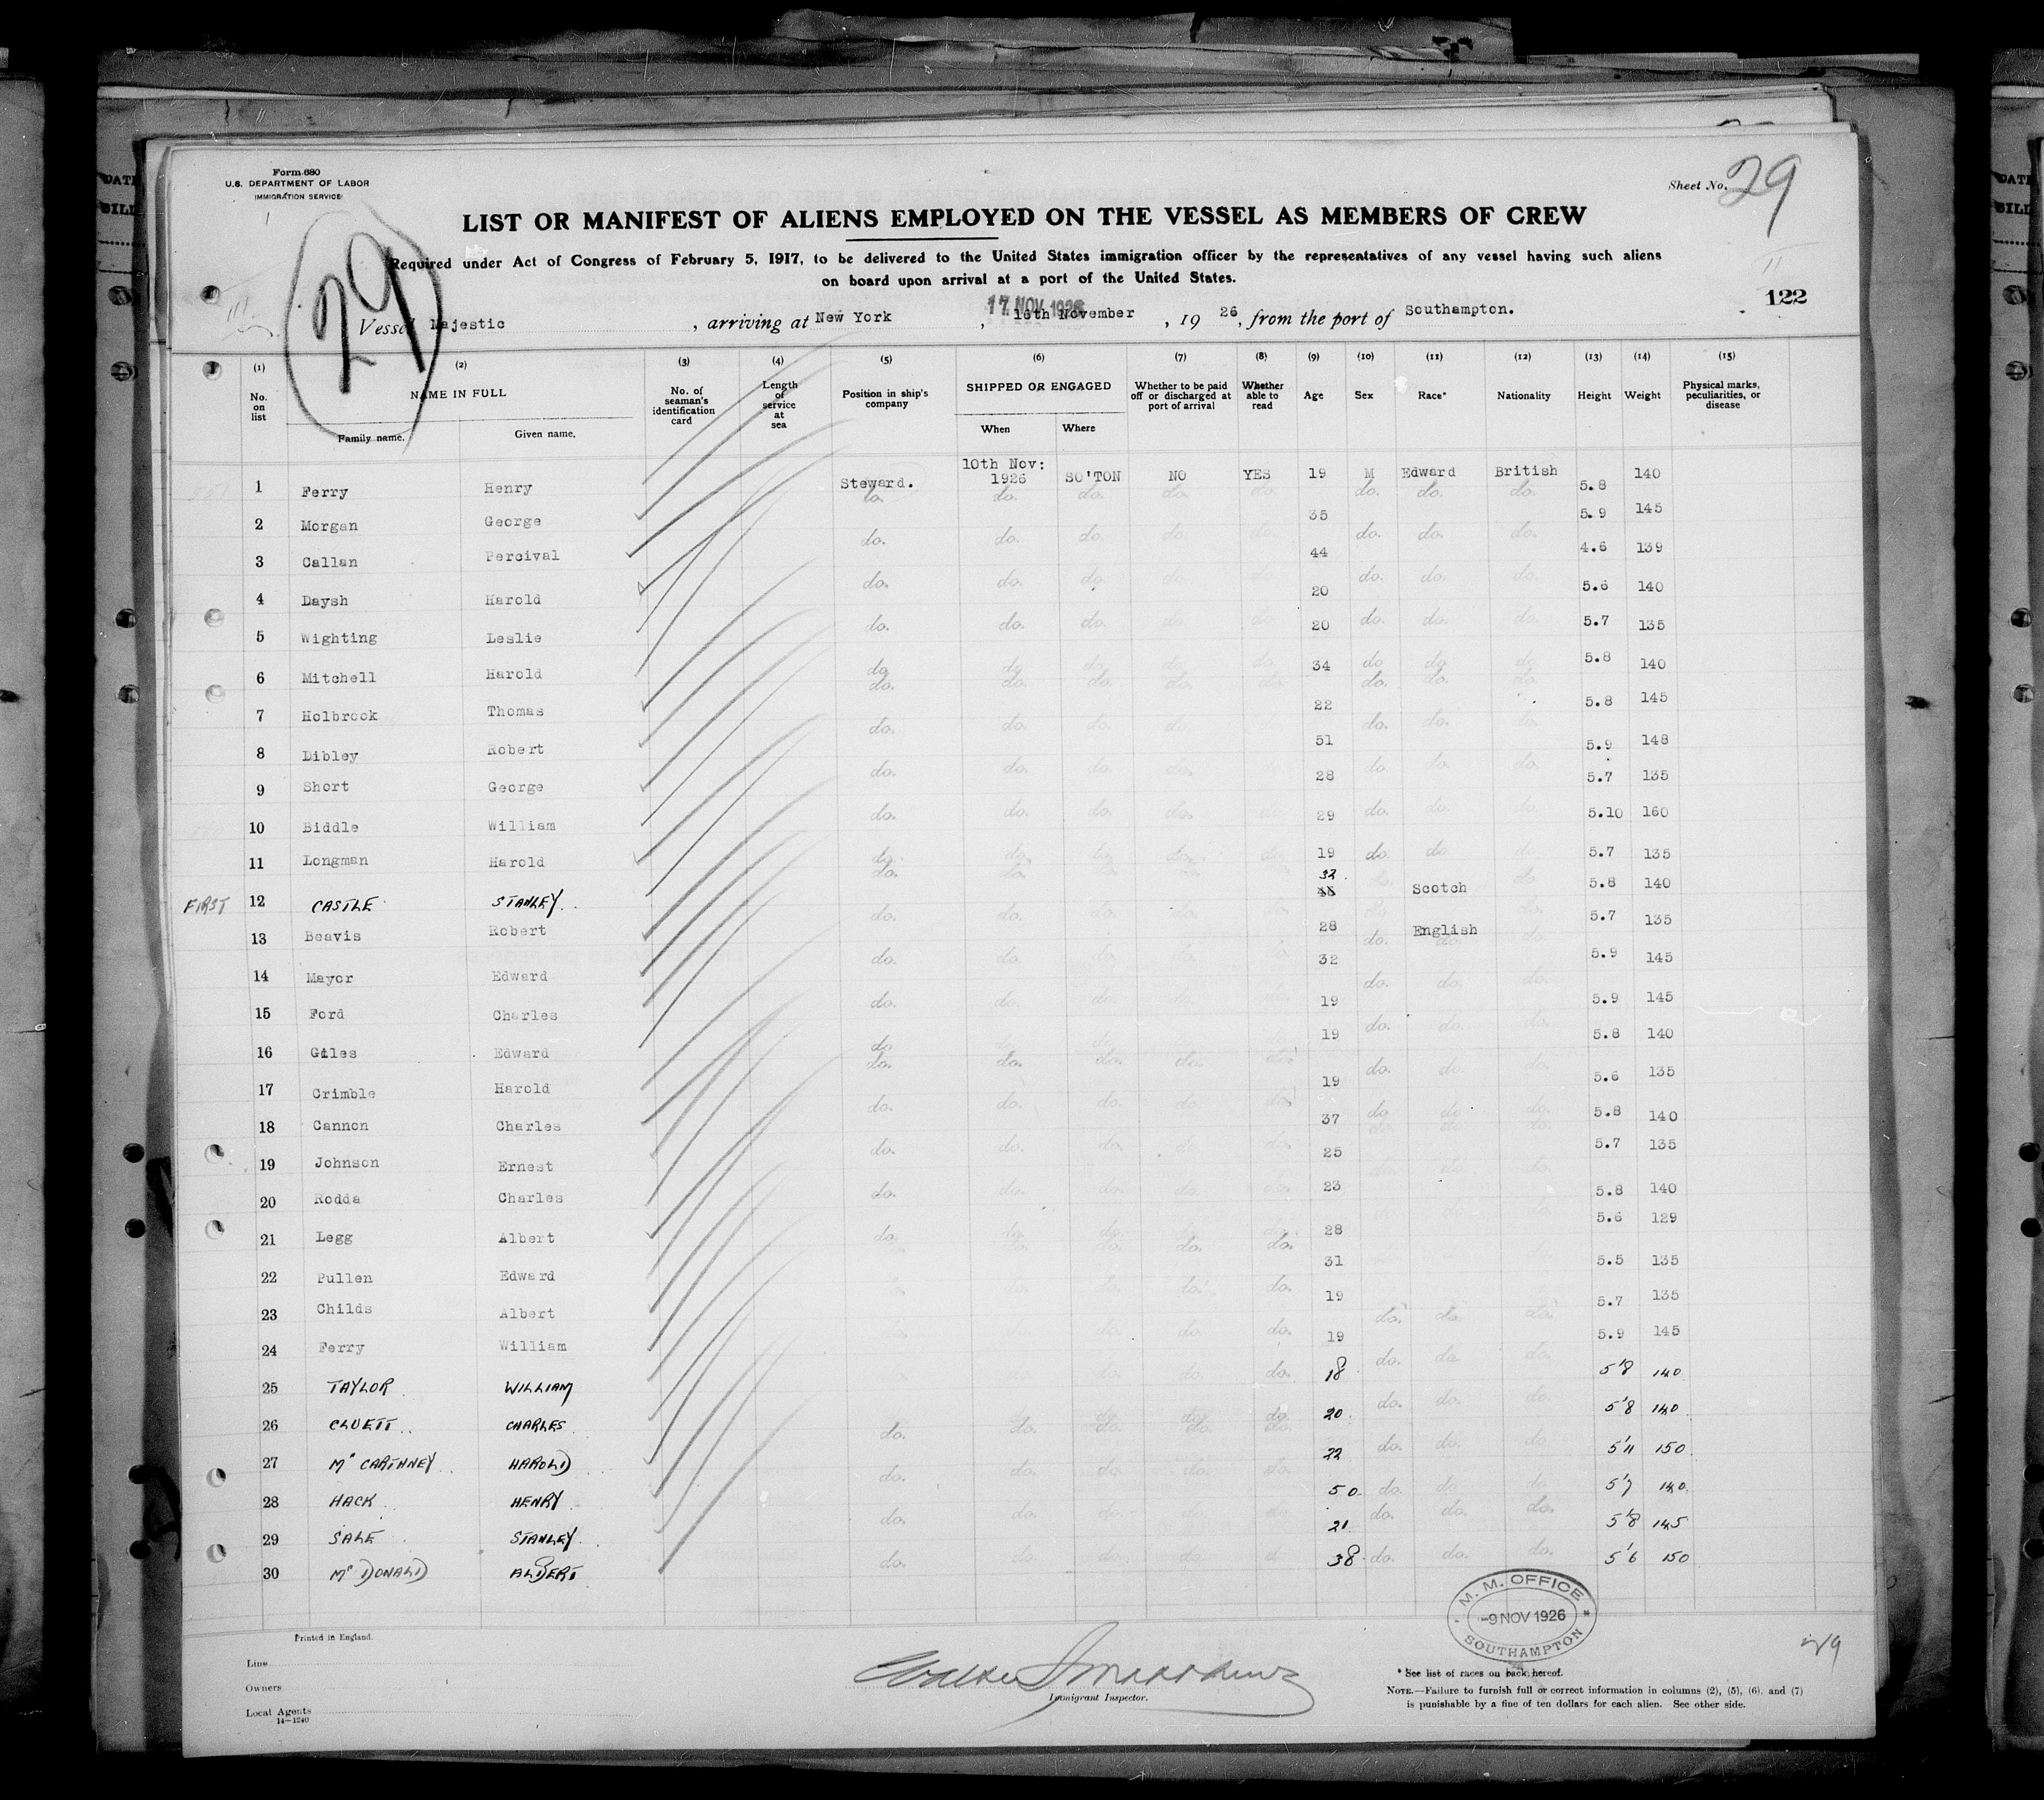 Form 680
U.S. DEPARTMENT OF LABOR
IMMIGRATION SERVICE
Sheet No. 29
29
LIST OR MANIFEST OF ALIENS EMPLOYED ON THE VESSEL AS MEMBERS OF CREW
Required under Act of Congress of February 5, 1917, to be delivered to the United States immigration officer by the representatives of any vessel having such aliens
on board upon arrival at a port of the United States.
122
17 NOV 1926
Vessel Majestic, arriving at New York, 16th November, 1926, from the port of Southampton.
(1) (2) (3) (4) (5) (6) (7) (8) (9) (10) (11) (12) (13) (14) (15)
No. on list NAME IN FULL No. of seaman's identification card Length of service at sea Position in ship's company SHIPPED OR ENGAGED Whether to be paid off or discharged at port of arrival Whether able to read Age Sex Race* Nationality Height Weight Physical marks, peculiarities, or disease
Family name. Given name. When Where
1 Ferry Henry Steward. 10th Nov: 1926 SO'TON NO YES 19 M Edward British 5.8 140
2 Morgan George do. do. do. do. do. 35 do. do. do. 5.9 145
3 Callan Percival do. do. do. do. do. 44 do. do. do. 4.6 139
4 Daysh Harold do. do. do. do. do. 20 do. do. do. 5.6 140
5 Wighting Leslie do. do. do. do. do. 20 do. do. do. 5.7 135
6 Mitchell Harold do do do do do 34 do do do 5.8 140
7 Holbrook Thomas do. do. do. do. do. 22 do. do. do. 5.8 145
8 Dibley Robert do. do. do. do. do. 51 do. do. do. 5.9 148
9 Short George do. do. do. do. do. 28 do. do. do. 5.7 135
10 Biddle William do. do. do. do. do. 29 do. do. do. 5.10 160
11 Longman Harold do. do. do. do. do. 19 do. do. do 5.7 135
FIRST 12 CASTLE STANLEY. do. do. do. do. 32. do. Scotch do. 5.8 140
13 Beavis Robert do. do. do. do. do. 28 do. English do. 5.7 135
14 Mayor Edward do. do. do. do. 32 do. do. do. 5.9 145
15 Ford Charles do. do. do. do. 19 do. do. do. 5.9 145
16 Giles Edward do do do do 19 do. do. do. 5.8 140
17 Crimble Harold do. do. do. do. do. 19 do. do. do. 5.6 135
18 Cannon Charles do. do. do. do. do. 37 do do do. 5.8 140
19 Johnson Ernest do. do. do. do. do. 25 5.7 135
20 Rodda Charles do. do. do. do. do. 23 5.8 140
21 Legg Albert do. do. do. do. do. 28 5.6 129
22 Pullen Edward do. do. do. do. 31 5.5 135
23 Childs Albert do. do. do. do. 19 do. do. do. 5.7 135
24 Ferry William do. do. do. do. 19 do. do. do. 5.9 145
25 TAYLOR WILLIAM do. do. do. do. 18 do. do. do. 5'8 140
26 CLUETT CHARLES do. do. do. do. do. 20. do. do. do. 5'8 140
27 Mc CARTHNEY HAROLD do. do. do. do. do. 22 do. do. do 5'11 150
28 HACK HENRY do. do. do. do. do. 50 do. do. do. 5'7 140.
29 SALE STANLEY. do. do. do. do. do. 21. do. do. do. 5'8 145
30 Mc DONALD ALBERT do. do. do. do. d 38. do. do. do. 5'6 150
M. M. OFFICE
-9 NOV 1926
SOUTHAMPTON
Printed in England.
29
Line
Owners
Local Agents
14—1240
Immigrant Inspector.
* See list of races on back hereof.
NOTE.—Failure to furnish full or correct information in columns (2), (5), (6), and (7)
is punishable by a fine of ten dollars for each alien. See other side.